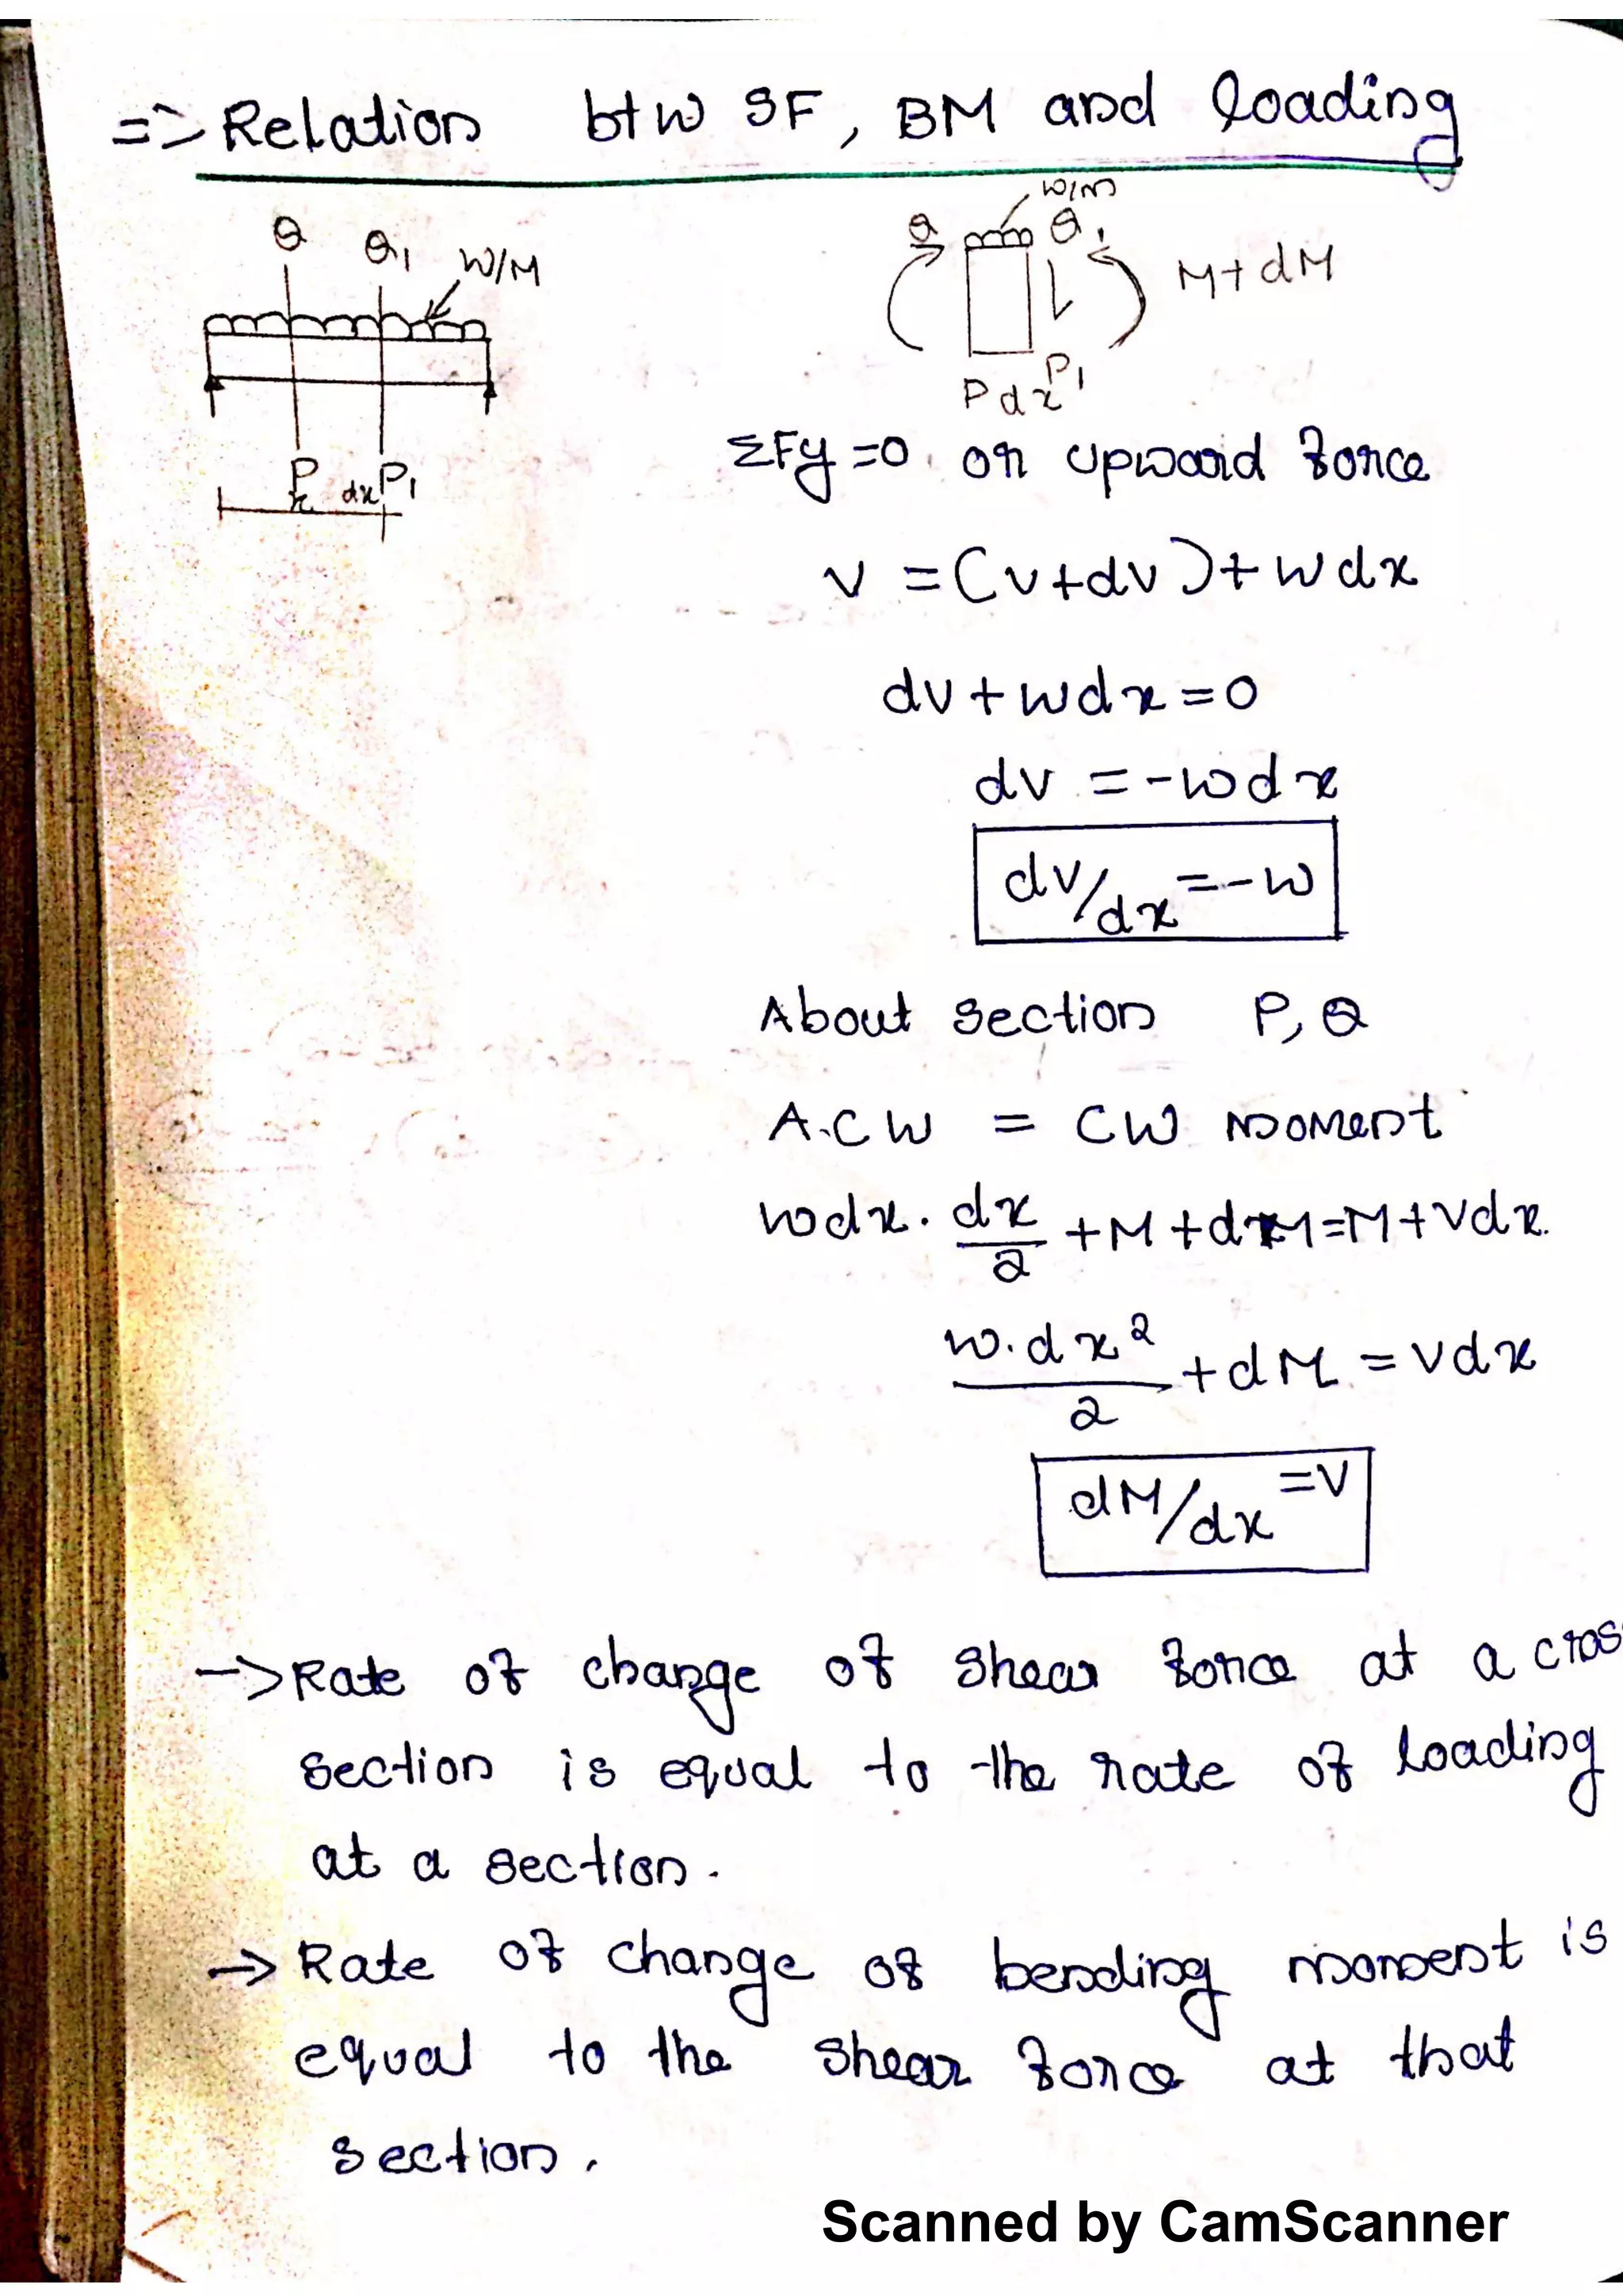 => Relation btw SF, BM and loading
Q Q1 W/M
P P1
x dx
w/m
Q Q1
M+dM
P dx P1
ΣFy=0 or upward force
v =(v+dv)+wdx
dv+wdx=0
dv =-wdx
dv/dx=-w
About section P, Q
A.C W = CW moment
wdx. dx/2 +M+dM=M+vdx.
w.dx²/2 +dM = vdx
dM/dx=V
->Rate of change of shear force at a cros
section is equal to the rate of loading
at a section.
-> Rate of change of bending moment is
equal to the shear force at that
section.
Scanned by CamScanner